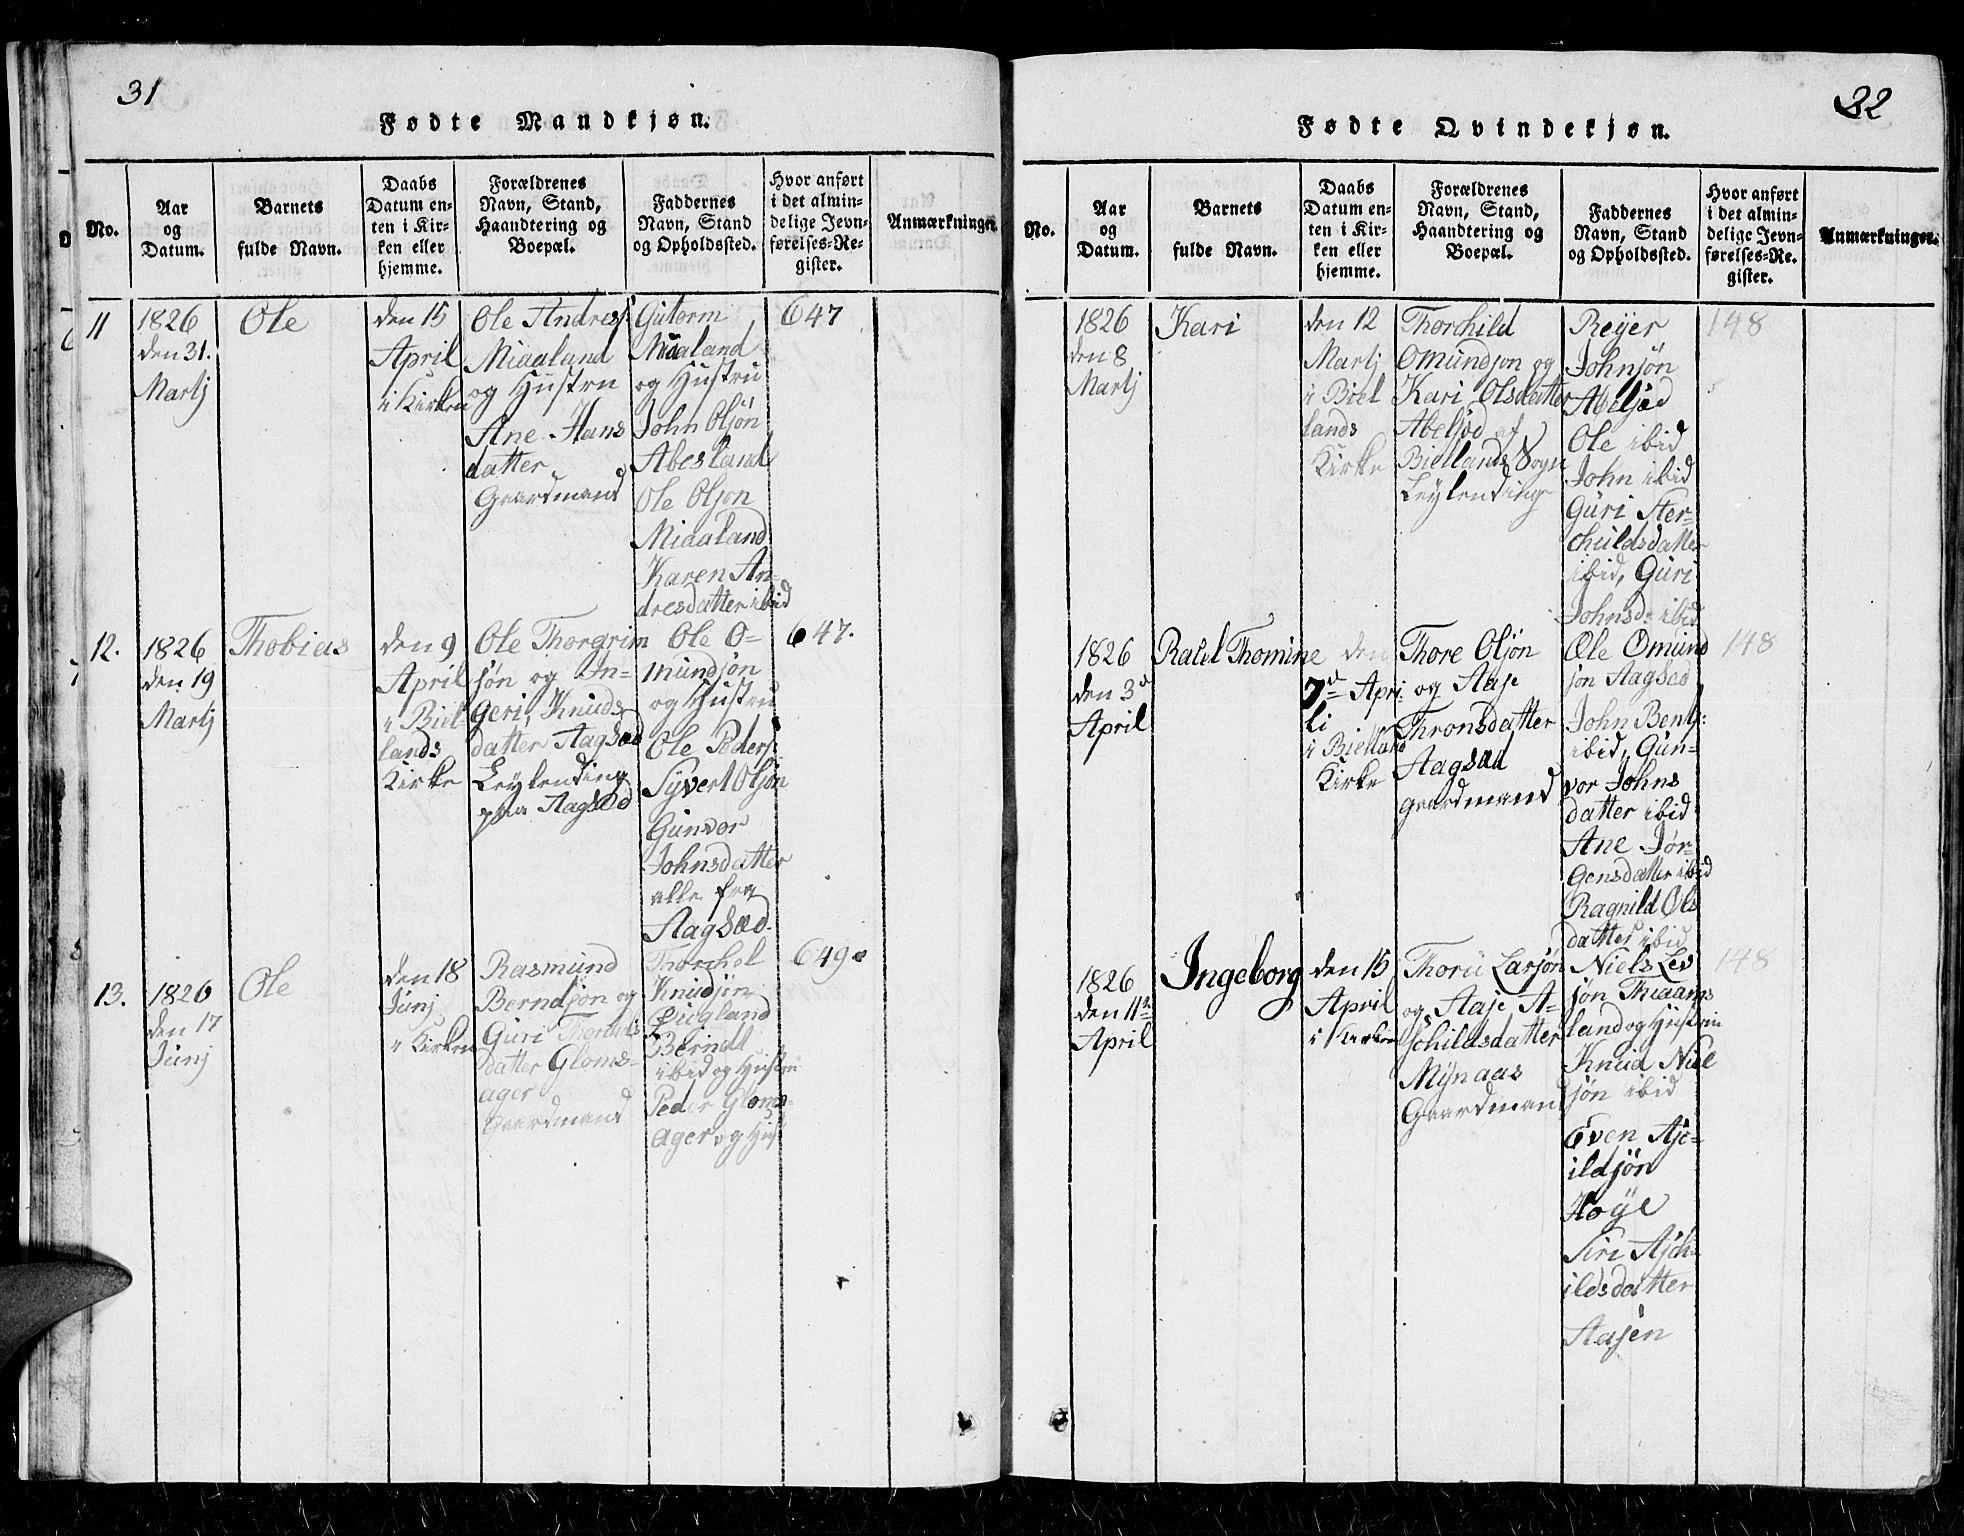 31
Fødte Mandkjøn.
No.
Aar
og
Datum.
Barnets
fulde Navn.
Daabs
Datum en-
ten i Kir-
ken eller
hjemme.
Forældrenes
Navn, Stand,
Haandtering og
Boepæl.
Faddernes
Navn, Stand
og Opholdssted.
Hvor anført
i det almin-
delige Jevn-
førelses-Re-
gister.
Anmærkninger.
11
1826
den 31.
Martj
Ole
den 15
April
i Kirken
Ole Andresj:
Midaland
og Hustru
Ane Hans
datter
Gaardmand
Gutorm
Midaland
og Hustru
John Olsøn
Abesland
Ole Olson
Midaland
Karen An-
dresdatter ibid
647
12.
1826
den 19
Martj
Thobias
den 9
April
i Biel
lands
Kirke
Ole Thorgrim
søn og In-
geri, Knuds
datter Aagsæd
Leylending
paa Aagsæd
Ole O-
mundsøn
og Hustru
Ole Peders:
Syvert Olsøn
Gunvor
Johnsdatter
alle fra
Aagsæd.
647.
13.
1826
den 17
Junj
Ole
den 18
Junj
i Kirken
Rasmund
Berndsøn og
Guri
datter Gloms-
ager
Gaardmand
Thorchel
Knudsøn
Berndt
ibid og Hustru
Peder Gloms-
ager og Hust
649.
32
Fødte Qvindekjøn.
No.
Aar
og
Datum.
Barnets
fulde Navn.
Daabs
Datum en-
ten i Kir-
ken eller
hjemme.
Forældrenes
Navn, Stand,
Haandtering og
Boepæl.
Faddernes
Navn, Stand
og Opholdssted.
Hvor anført
i det almin-
delige Jevn-
førelses-Re-
gister.
Anmærkninger.
1826
den 8
Martj
Kari
den 12
Martj
i Biel
lands
Kirke
Thorchild
Omundson og
Kari Olsdatter
Abelsæd af
Biellands Sogn
Leylending
Reyer
Johnsøn
Abelsæd
Ole ibid
John ibid
Guri Ster-
childsdatter
ibid, Guri
Johnsd: ibid
148
1826
den 3d
April
Rakel Thomine
den
7d Apri
li
i Bielland
Kirke
Thore Olsøn
og Aase
Thronsdatter
Aagsæd
gaardmand
Ole Omund
søn Aagsæd
John Bents:
ibid, Gun-
vor Johns
datter ibid
Ane Jør-
gensdatter ibid
Ragnild Ols
datter ibid
148
1826
den 11te
April
Ingeborg
den 15
April
i Kirken
Thoru Larsøn
og Aase A-
schildsdatter
Mynaas
Gaardmand
Niels Lev
søn Thiaams
land og Hustrue
Knud Niel
søn ibid
Even Asc-
ildsøn
Høye
Siri Asch-
ildsdatter
Aasen
148